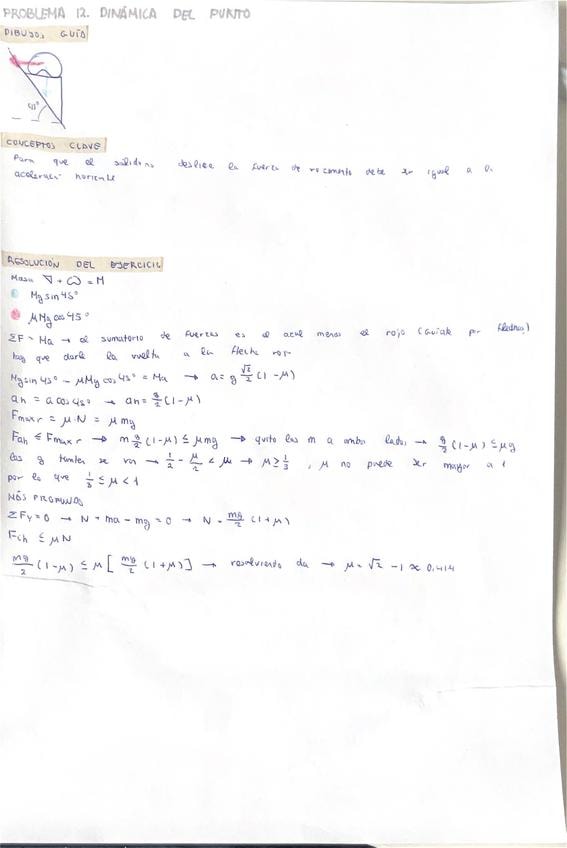 PROBLEMA 12. DINÁMICA DEL PUNTO
DIBUJO, GUÍA
45°
CONCEPTOS CLAVE
Para que el sólido no deslice la fuerza de rozamiento debe ser igual a la
aceleración
RESOLUCIÓN DEL EJERCICIO
Masa ∇ + = M
Mg sin 45°
μMg cos 45°
ΣF = Ma → el sumatorio de fuerzas es el azul menos el rojo (Guíate por flechas)
hay que darle la vuelta a la flecha
Mg sin 45° - μMg cos 45° = Ma → a = g √2/2 (1 - μ)
ah = a cos 45° → ah = g/2 (1 - μ)
Fmax r = μ · N = μ mg
Fah ≤ Fmax r → m g/2 (1 - μ) ≤ μmg → quito las m a ambos lados → g/2 (1 - μ) ≤ μg
las g también se van → 1/2 - μ/2 ≤ μ → μ ≥ 1/3 , μ no puede ser mayor a 1
por lo que 1/3 ≤ μ < 1
MÁS PROFUNDO
ΣFy = 0 → N + ma - mg = 0 → N = mg/2 (1 + μ)
Fch ≤ μN
mg/2 (1 - μ) ≤ μ [ mg/2 (1 + μ) ] → resolviendo da → μ = √2 - 1 ≈ 0.414